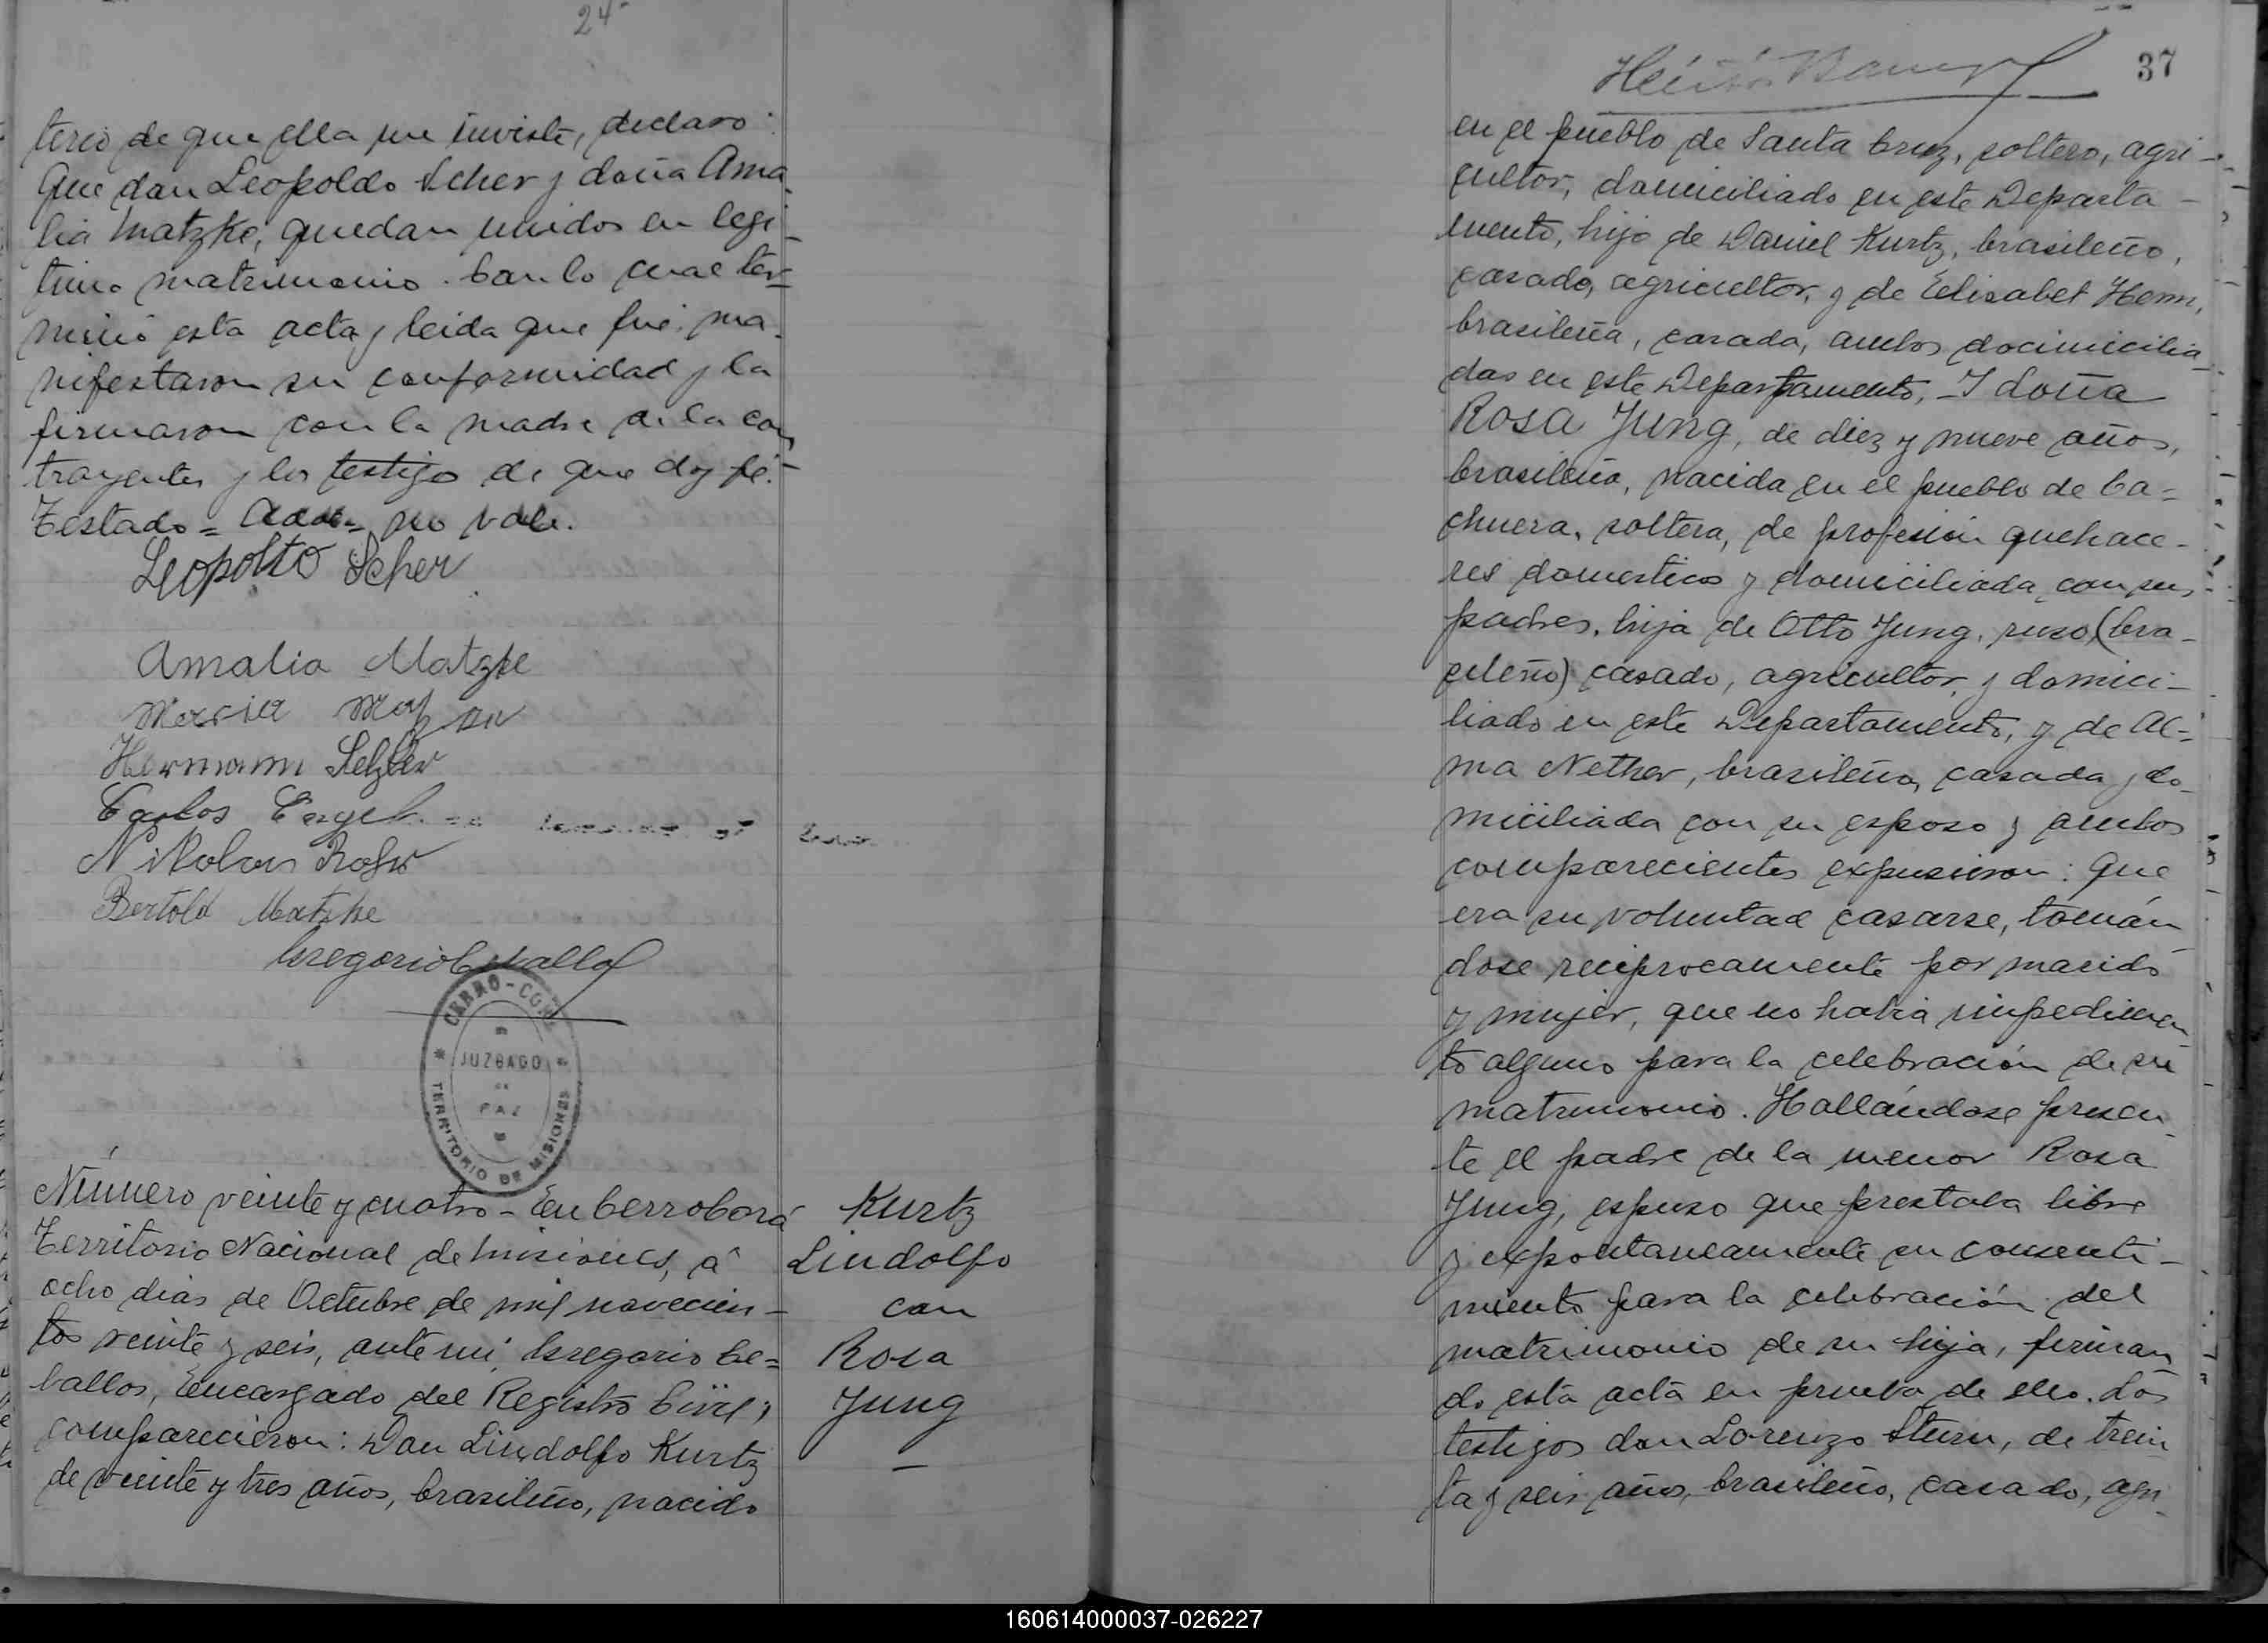 24
terio de que ella me inviste, declaro:
Que don Leopoldo Scher y doña Ama-
lia Matzke, quedan unidos en legi-
timo matrimonio. Con lo cual ter-
minó esta acta y leida que fué, ma-
nifestaron su conformidad y la
firmaron con la madre de la con
trayentes y los testigo de que doy fé.-
Testado= = no vale.
Leopolto Scher
Amalia Matzke
Hermann
Carlos Engel
Bertold Matzke
Gregorio Ceballos
CERRO-CORÁ
JUZGADO
DE
PAZ
TERRITORIO DE MISIONES
Número veinte y cuatro - En Cerro Corá
Territorio Nacional de Misiones, á
ocho dias de Octubre de mil novecien-
tos veinte y seis, ante mi, Gregorio Ce=
ballos, Encargado del Registro Civil;
comparecieron: Don Lindolfo Kurtz
de veinte y tres años, brasileño, nacido
Kurtz
Lindolfo
con
Rosa
Jung
37
en el pueblo de Santa Cruz, soltero, agri-
cultor, domiciliado en este Departa-
mento, hijo de Daniel Kurtz, brasileño,
casado, agricultor, y de Elisabet Henn,
brasileña, casada, ambos docimicilia
dos en este Departamento, - I doña
Rosa Jung, de diez y nueve años,
brasileña, nacida en el pueblo de Ca=
chuera, soltera, de profesión quehace-
res domesticos y domiciliada con sus
padres, hija de Otto Jung, ruso, (bra-
cileño) casado, agricultor, y domici-
liado en este Departamento, y de Al-
ma Nether, brasileña, casada y do-
miciliada con su esposo y ambos
comparecientes expusieron: Que
era su voluntad casarse, tomán
dose reciprocamente por marido
y mujer, que no habia impedimen
to alguno para la celebración de su
matrimonio. Hallándose presen
te el padre de la menor Rosa
Jung, espuso que prestaba libre
y expontaneamente su consenti-
miento para la celebración del
matrimonio de su hija, firman
do esta acta en prueba de ello. Los
testigos don Lorenzo Sturn, de trein
ta y seis años, brasileño, casado, agri-
160614000037-026227